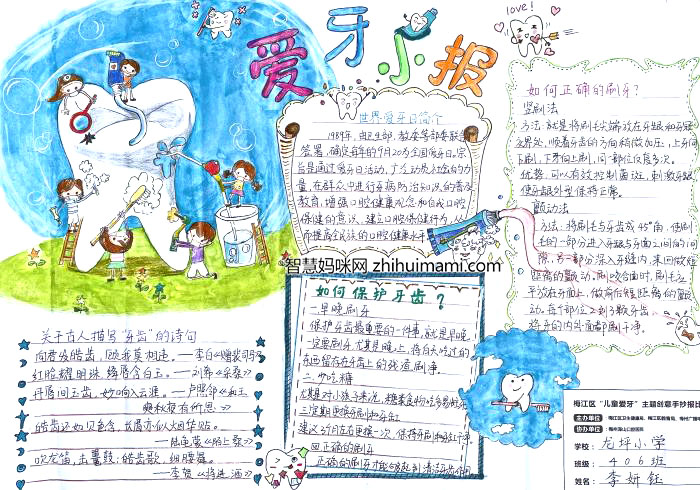 爱牙小报
love!
世界爱牙日简介
1989年,由卫生部、教委等部委联合
签署,确定每年的9月20为全国爱牙日。宗
旨是通过爱牙日活动,广泛动员社会的力
量,在群众中进行牙病防治知识的普及
教育,增强口腔健康观念和自我口腔
保健的意识,建立口腔保健行为,从
而提高全民族的口腔健康水平
如何正确的刷牙?
竖刷法
方法:就是将刷毛尖端放在牙龈和牙冠
交界处,顺着牙齿的方向稍微加压,上牙向
下刷,下牙向上刷,同一部位反复多次。
优势:可以有效控制菌斑,刺激牙龈,
使牙龈外型保持正常。
颤动法
方法:将刷毛与牙齿成45°角,使刷
毛的一部分进入牙龈与牙面之间的间
隙,另一部分深入牙缝内,来回做短
距离的颤动。刷咬合面时,刷毛应
平放在牙面上,做前后短距离的颤
动。每个部位2到3颗牙齿
将牙的内外面都刷干净。
智慧妈咪网 zhihuimami.com
如何保护牙齿?
一.早晚刷牙
保护牙齿最重要的一件事,就是早晚
一定要刷牙,尤其是晚上,将白天吃过的
东西留存在牙齿上的残渣刷净。
二.少吃糖
三定期更换牙刷和牙膏
建议3个月左右更换一次,保持牙刷和牙膏干净
四正确的刷牙
关于古人描写"牙齿"的诗句
——李白《赠裴司马》
红脸耀明珠,绛唇含白玉。——刘希《
丹唇间玉齿,妙响入云涯。——卢照邻《和王
奭秋夜有所思》
皓齿还如贝色含,长眉亦似烟华贴。
吹龙笛,击鼍鼓;皓齿歌,细腰舞。
——李贺《将进酒》
梅江区"儿童爱牙"主题创意手抄报比
主办单位:
协办单位:
学校:龙坪小学
班级:406班
姓名:李妍钰